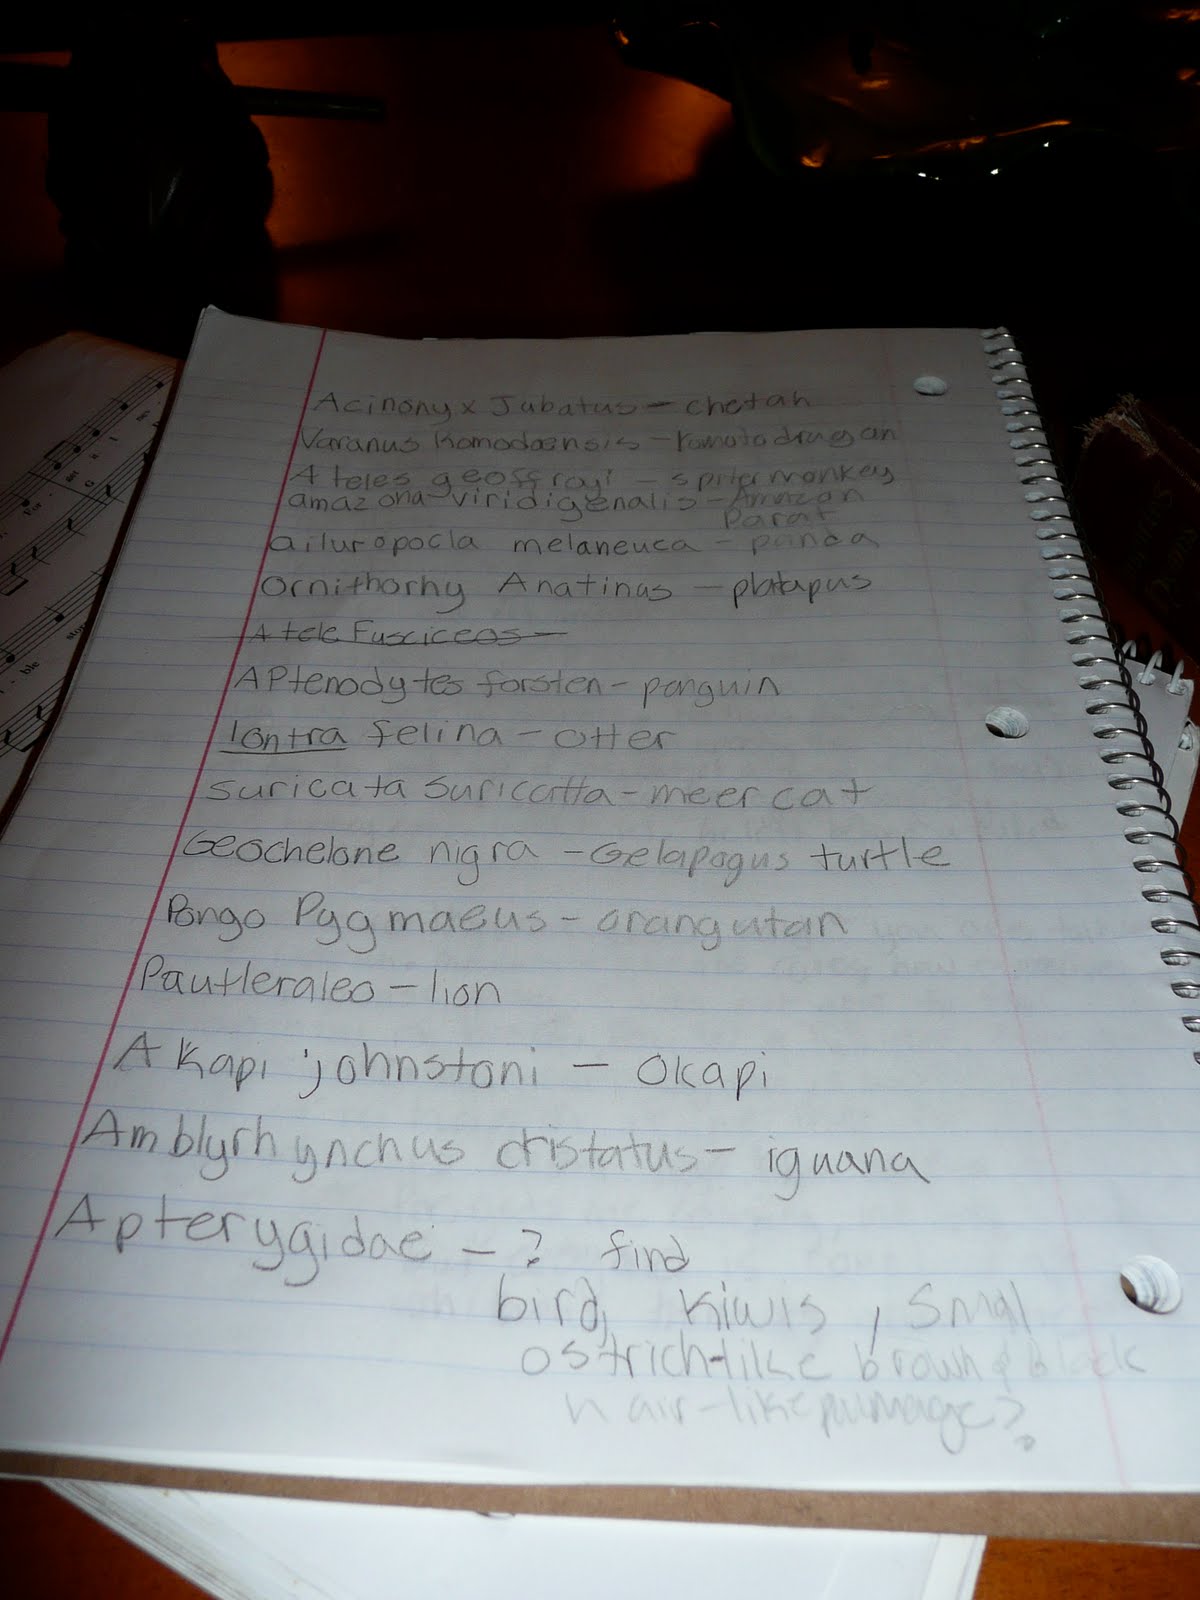 Acinonyx Jubatus - chetah
Varanus Komodoensis - komoto dragan
Ateles geoffrayi - spiter monkey
amazona viridigenalis - Amazon
Parat
ailuropocla melaneuca - panda
Ornithorhy Anatinus - platapus
Atele Fusciceos -
APtenodytes forsten - penguin
lontra felina - otter
suricata suricatta - meer cat
Geochelone nigra - Gelapagus turtle
Pongo Pygmaeus - orangutan
Pautleraleo - lion
AKapi johnstoni - Okapi
Amblyrhynchus cristatus - iguana
Apterygidae - ? find
bird, kiwis, Small
ostrich-like brown & black
hair-like plumage?